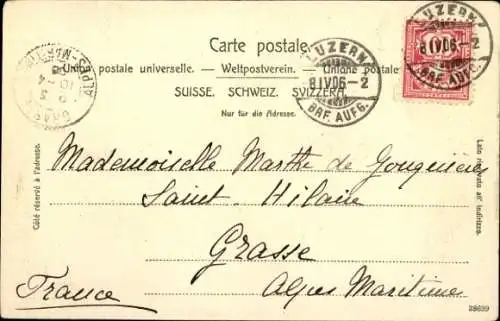 Carte postale.
Union postale universelle. — Weltpostverein. — Unione postale
SUISSE. SCHWEIZ. SVIZZERA.
Nur für die Adresse.
LUZERN
8 IV 06 - 2
BRF. AUFG.
LUZERN
8 IV 06 - 2
BRF. AUFG.
GRASSE
ALPES-MARITIMES
Côté réservé à l'adresse.
Lato riservato all' indirizzo.
Mademoiselle Marthe de Gouguenies
Saint-Hilaire
Grasse
France
Alpes Maritimes
28639